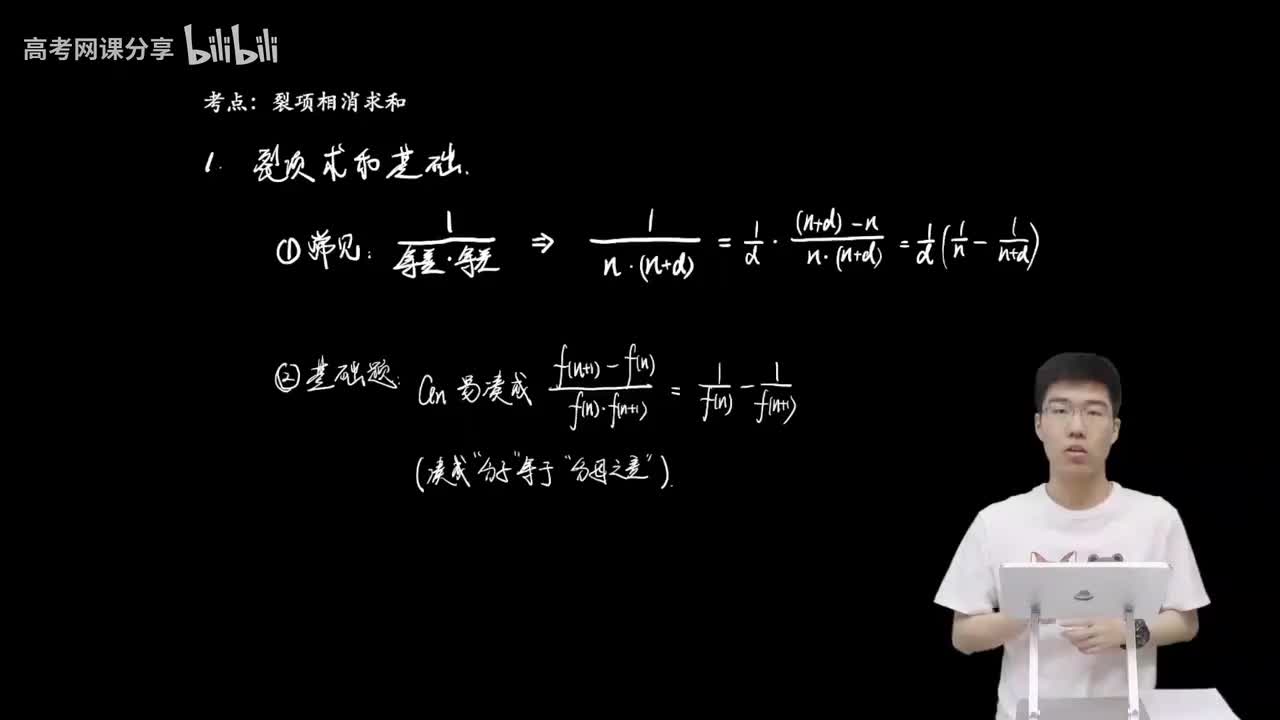 高考网课分享 bilibili
考点：裂项相消求和
1. 裂项求和基础.
①常见: 1/(等差·等差) ⇒ 1/(n·(n+d)) = 1/d · ((n+d)-n)/(n·(n+d)) = 1/d(1/n - 1/(n+d))
②基础题: an 易凑成 (f(n+1) - f(n))/(f(n)·f(n+1)) = 1/f(n) - 1/f(n+1)
(凑成“分子”等于“分母之差”).